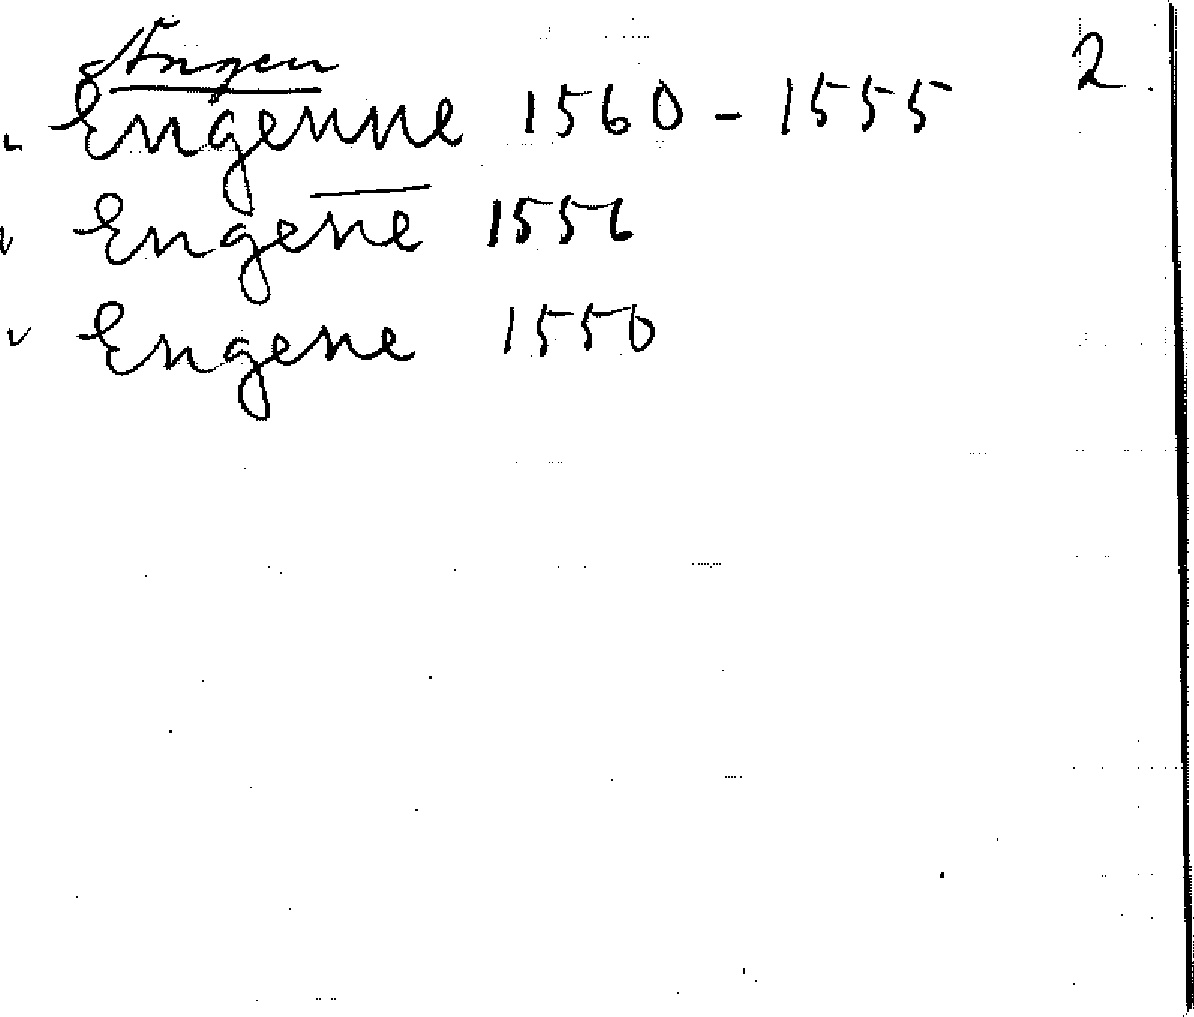 Engen 2
v Engenne 1560 - 1555
v Engene 1556
v Engene 1550